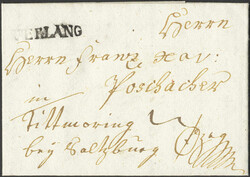 ERLANG
Herrn
Herrn Franz Xav:
Poschacher
in
Tittmoning
bey Saltzburg